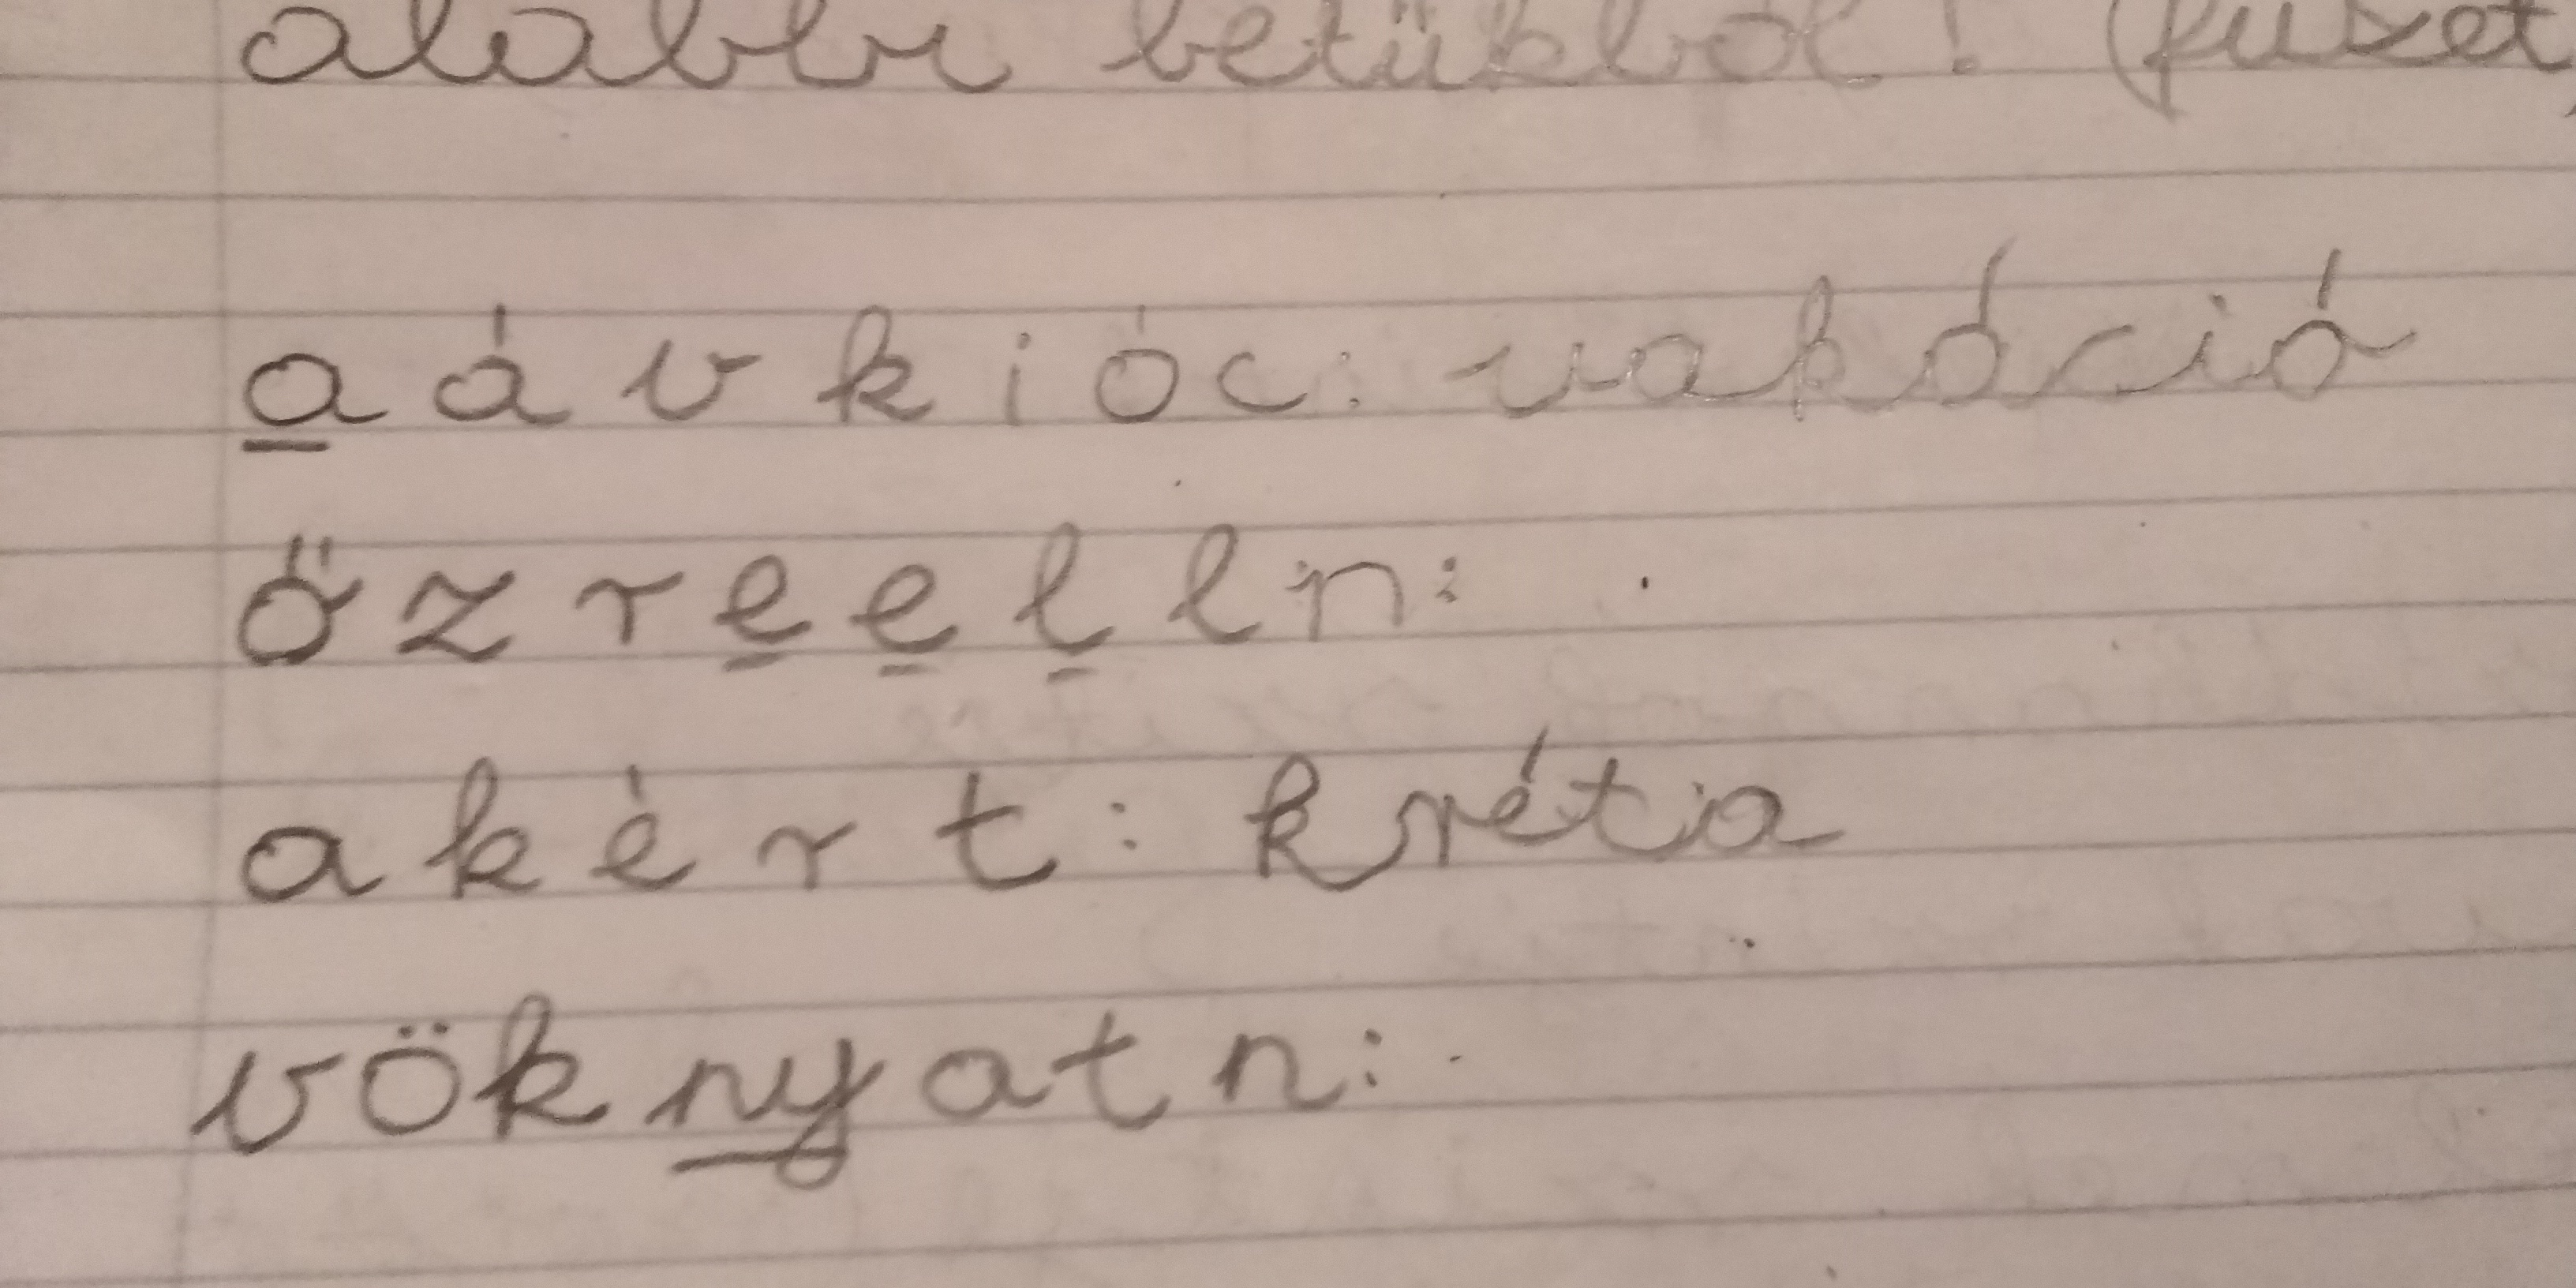 alábbi betűkből! (füzet,
a á v k i ó c: vakáció
ő z r e e l l n:
a k é r t: kréta
v ö k ny a t n: